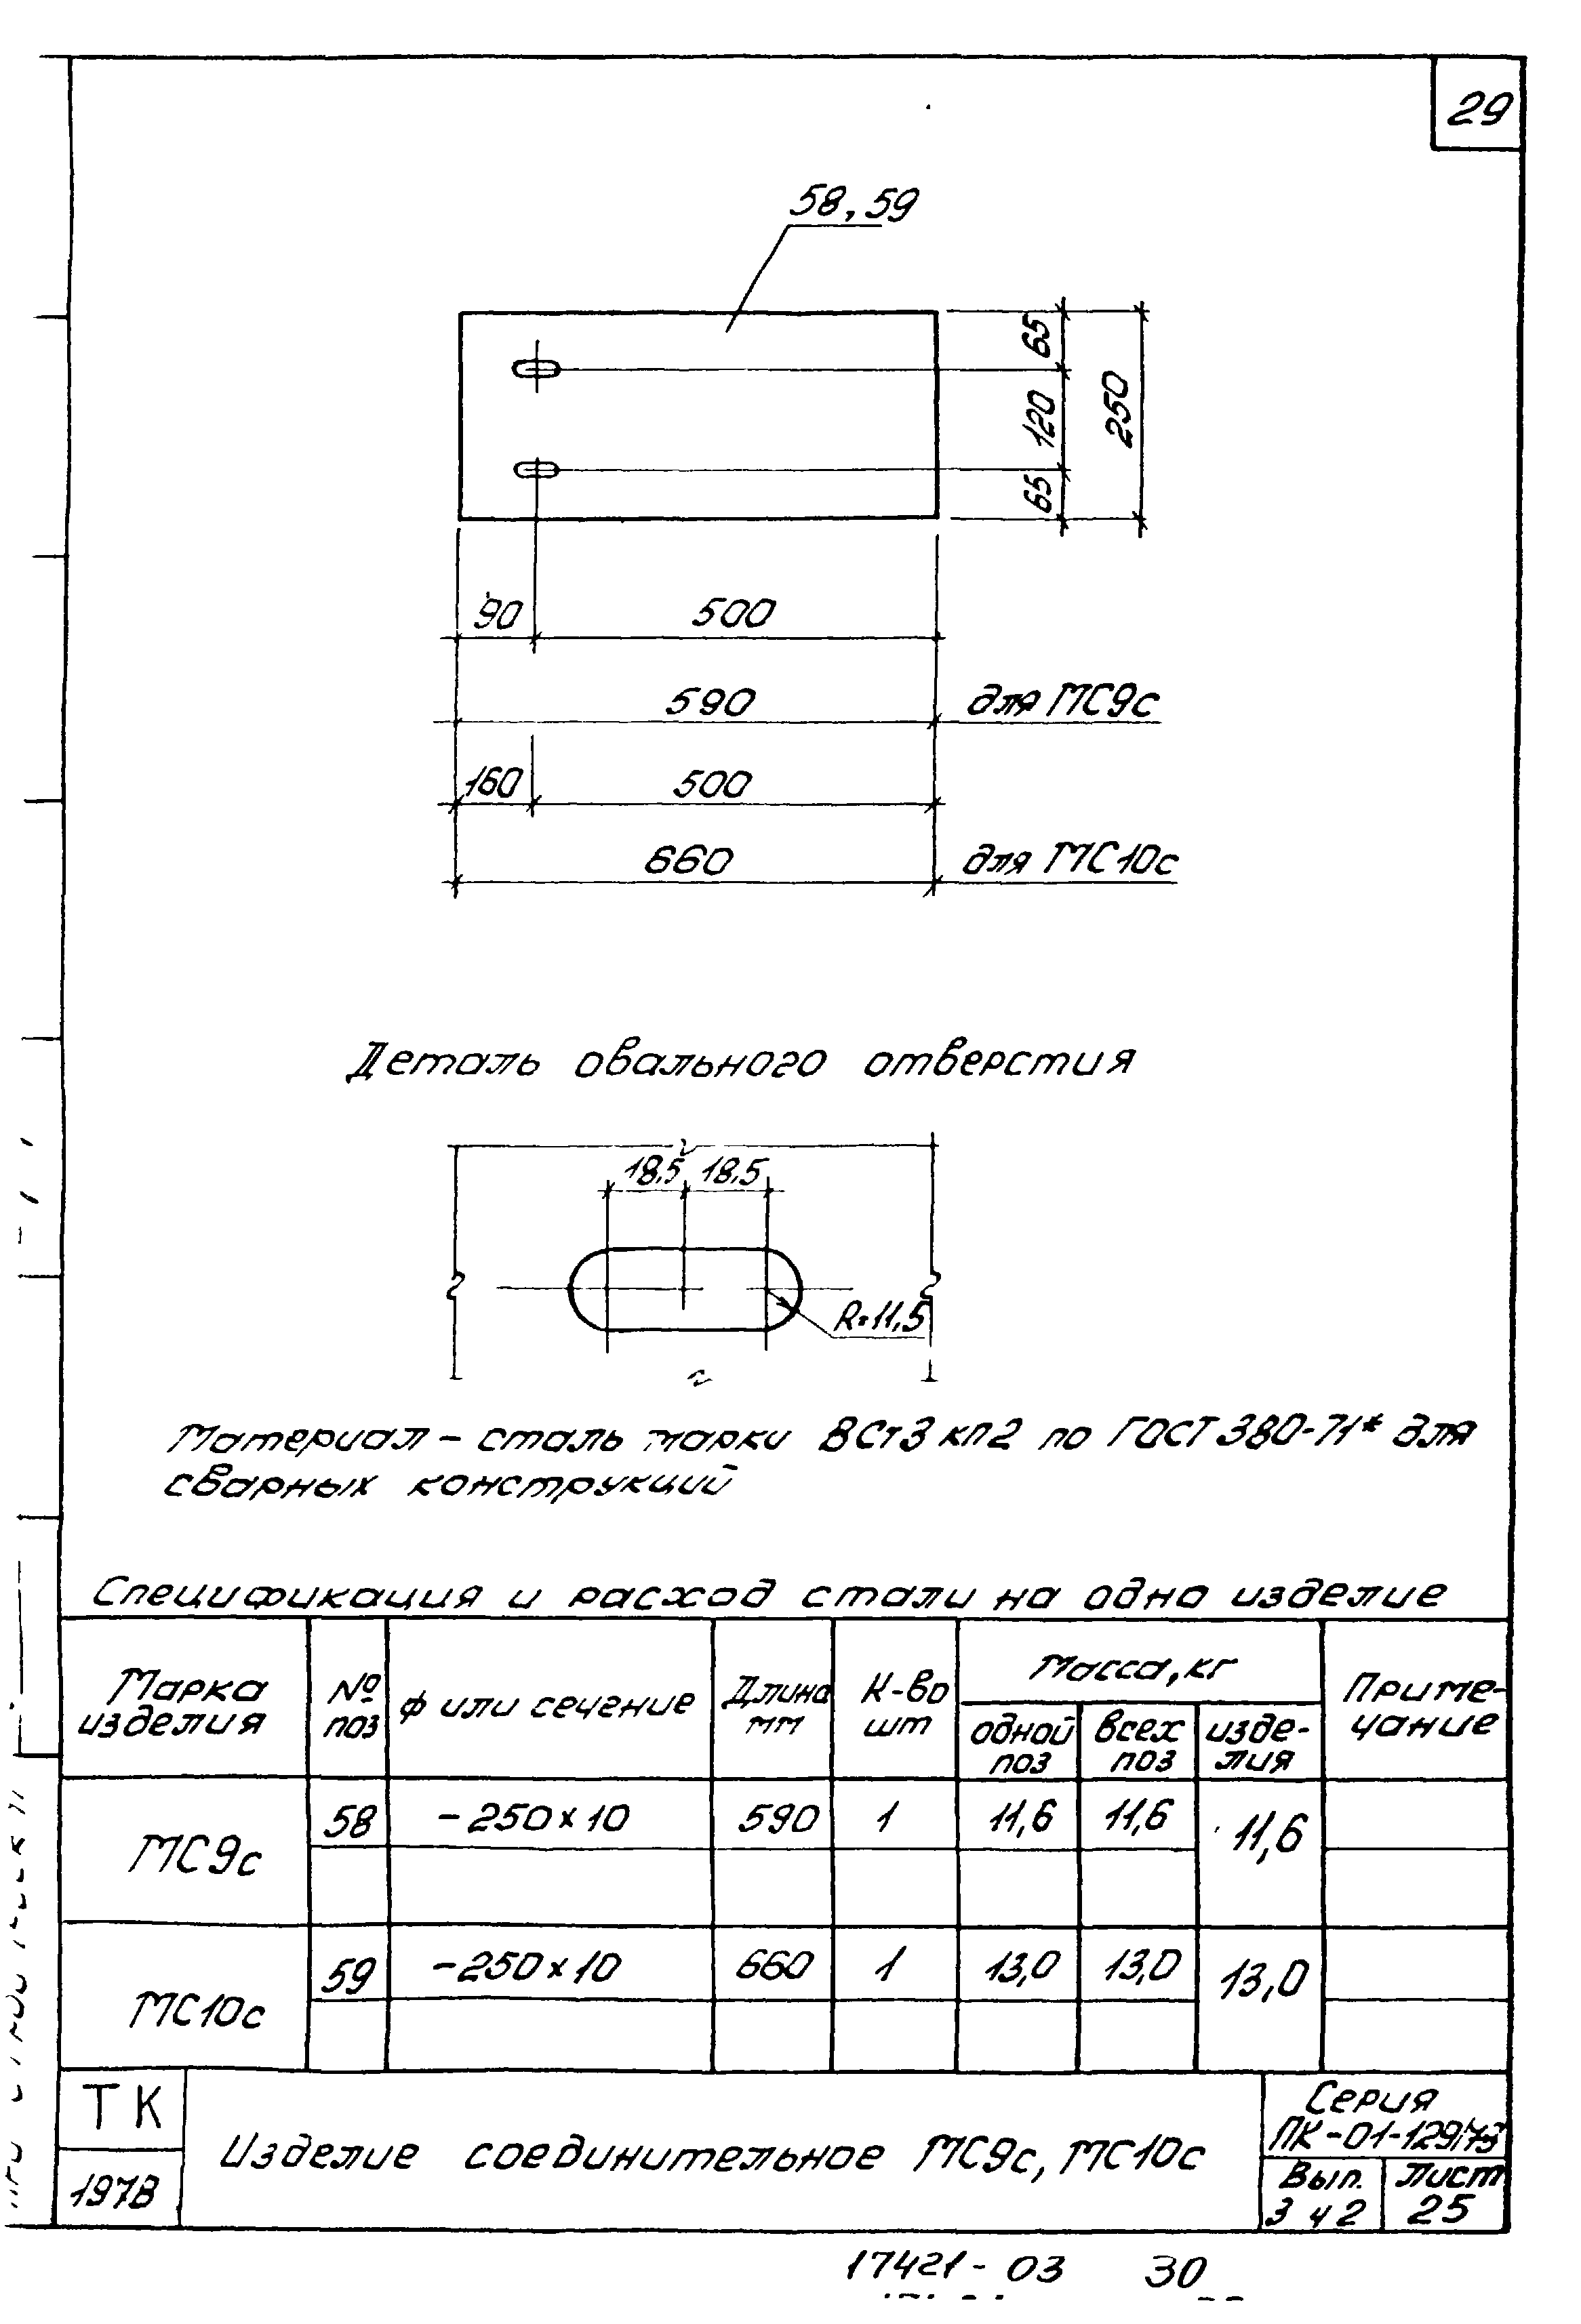 29
58, 59
65
120
65
250
90 500
590 для МС9с
160 500
660 для МС10с
Деталь овального отверстия
18,5 18,5
R=11,5
Материал – сталь марки ВСт3кп2 по ГОСТ 380-71* для
сварных конструкций
Спецификация и расход стали на одно изделие
Марка изделия
№ поз
ф или сечение
Длина мм
К-во шт
Масса, кг
одной поз
всех поз
изде-
лия
Приме-
чание
МС9с 58 – 250×10 590 1 11,6 11,6 11,6
МС10с 59 – 250×10 660 1 13,0 13,0 13,0
ТК
1978
Изделие соединительное МС9с, МС10с
Серия
ПК-01-129/73
Вып.
3 ч 2
Лист
25
17421-03 30